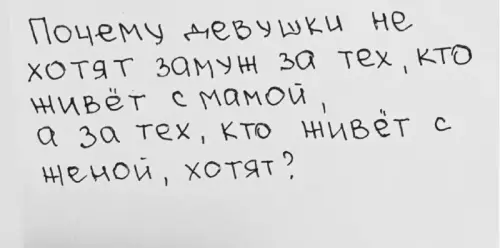 Почему девушки не
хотят замуж за тех, кто
живёт с мамой,
а за тех, кто живёт с
женой, хотят?